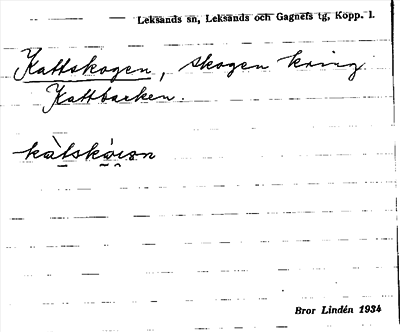 Leksands sn, Leksands och Gagnefs tg, Kopp. l.
Kattskogen, skogen kring
Kattbacken.
Bror Lindén 1934